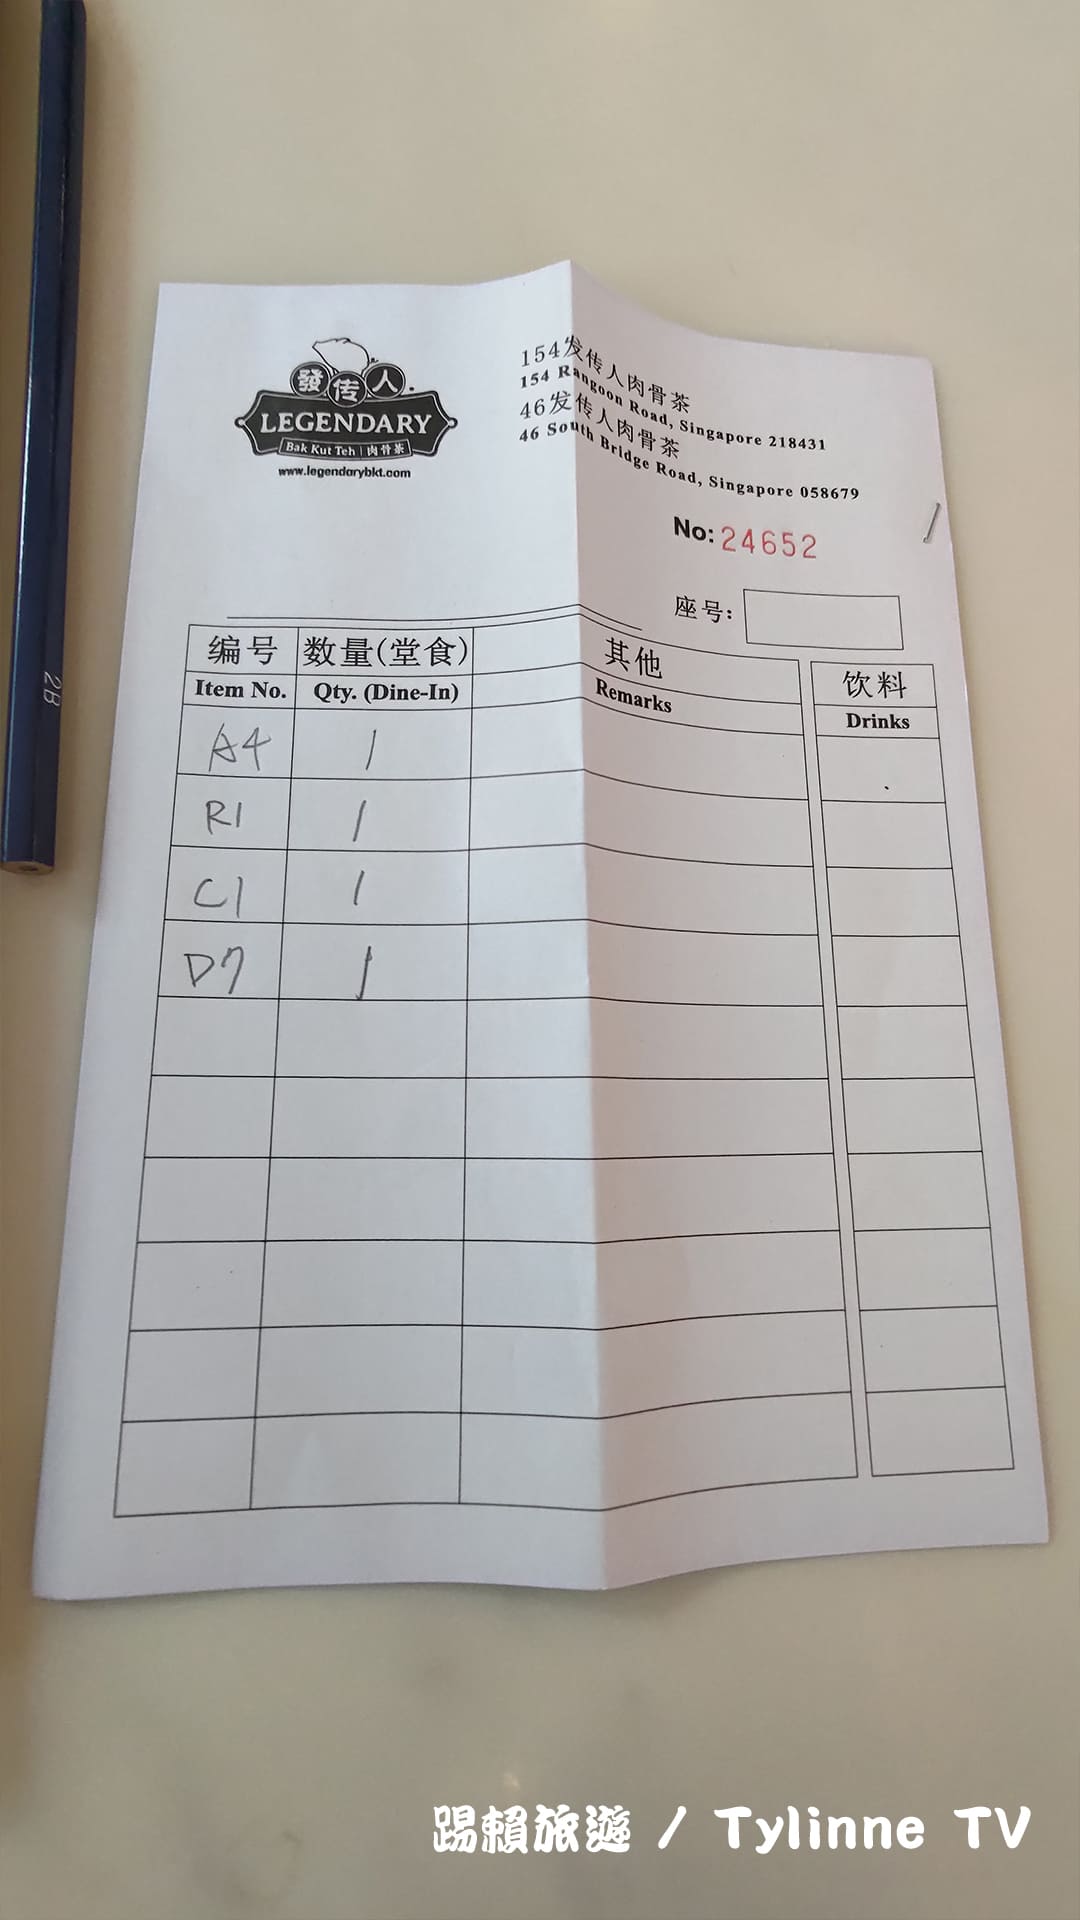 發传人.
LEGENDARY
Bak Kut Teh | 肉骨茶
www.legendarybkt.com
154发传人肉骨茶
154 Rangoon Road, Singapore 218431
46发传人肉骨茶
46 South Bridge Road, Singapore 058679
No: 24652
座号:
编号 数量(堂食) 其他 饮料
Item No. Qty. (Dine-In) Remarks Drinks
A4 1
R1 1
C1 1
D7 1
2B
踢賴旅遊 / Tylinne TV